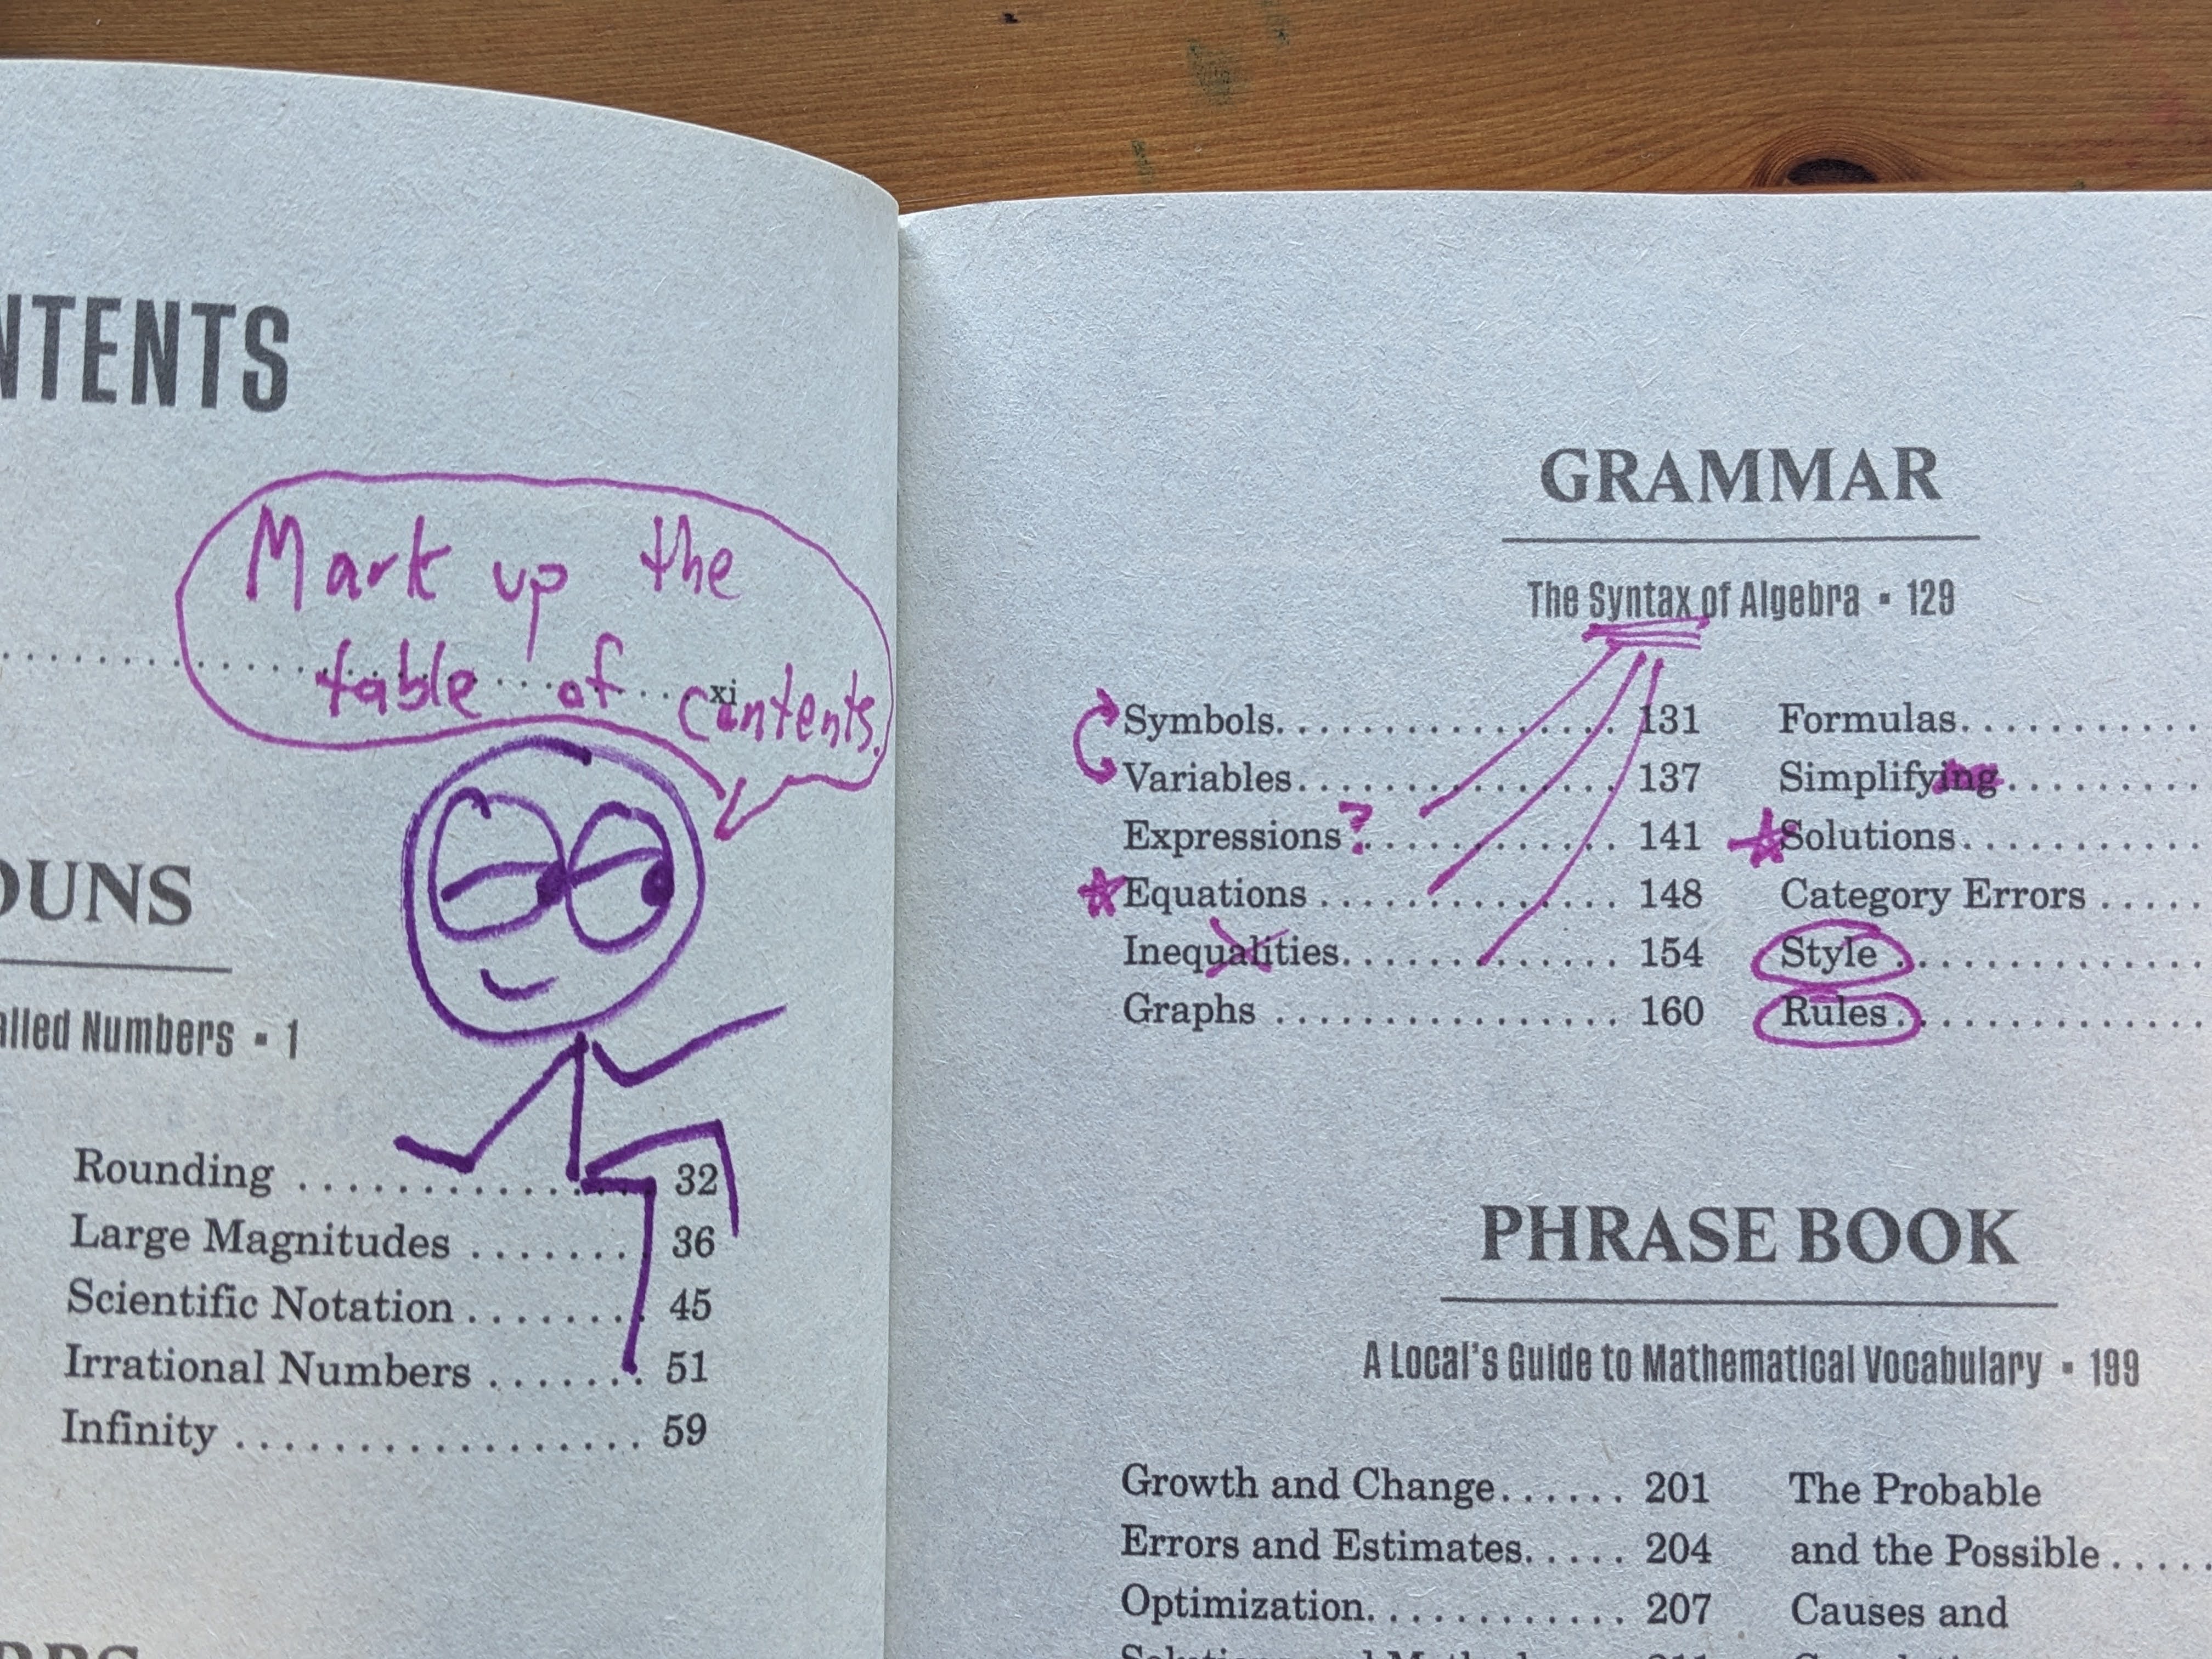 NTENTS
Mark up the
table of contents.
xi
OUNS
alled Numbers ▪ 1
Rounding ............... 32
Large Magnitudes ....... 36
Scientific Notation ....... 45
Irrational Numbers ....... 51
Infinity ................. 59
GRAMMAR
The Syntax of Algebra ▪ 129
Symbols................. 131
Variables................ 137
Expressions?............ 141
Equations ............... 148
Inequalities.............. 154
Graphs ................. 160
Formulas...........
Simplifying.........
Solutions...........
Category Errors .....
Style ..............
Rules..............
PHRASE BOOK
A Local's Guide to Mathematical Vocabulary ▪ 199
Growth and Change...... 201
Errors and Estimates..... 204
Optimization............ 207
The Probable
and the Possible .....
Causes and